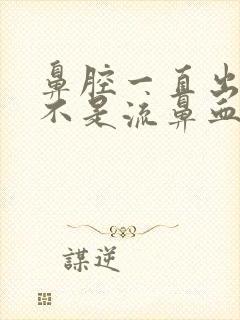 鼻腔一直出
不是流鼻血
謀逆